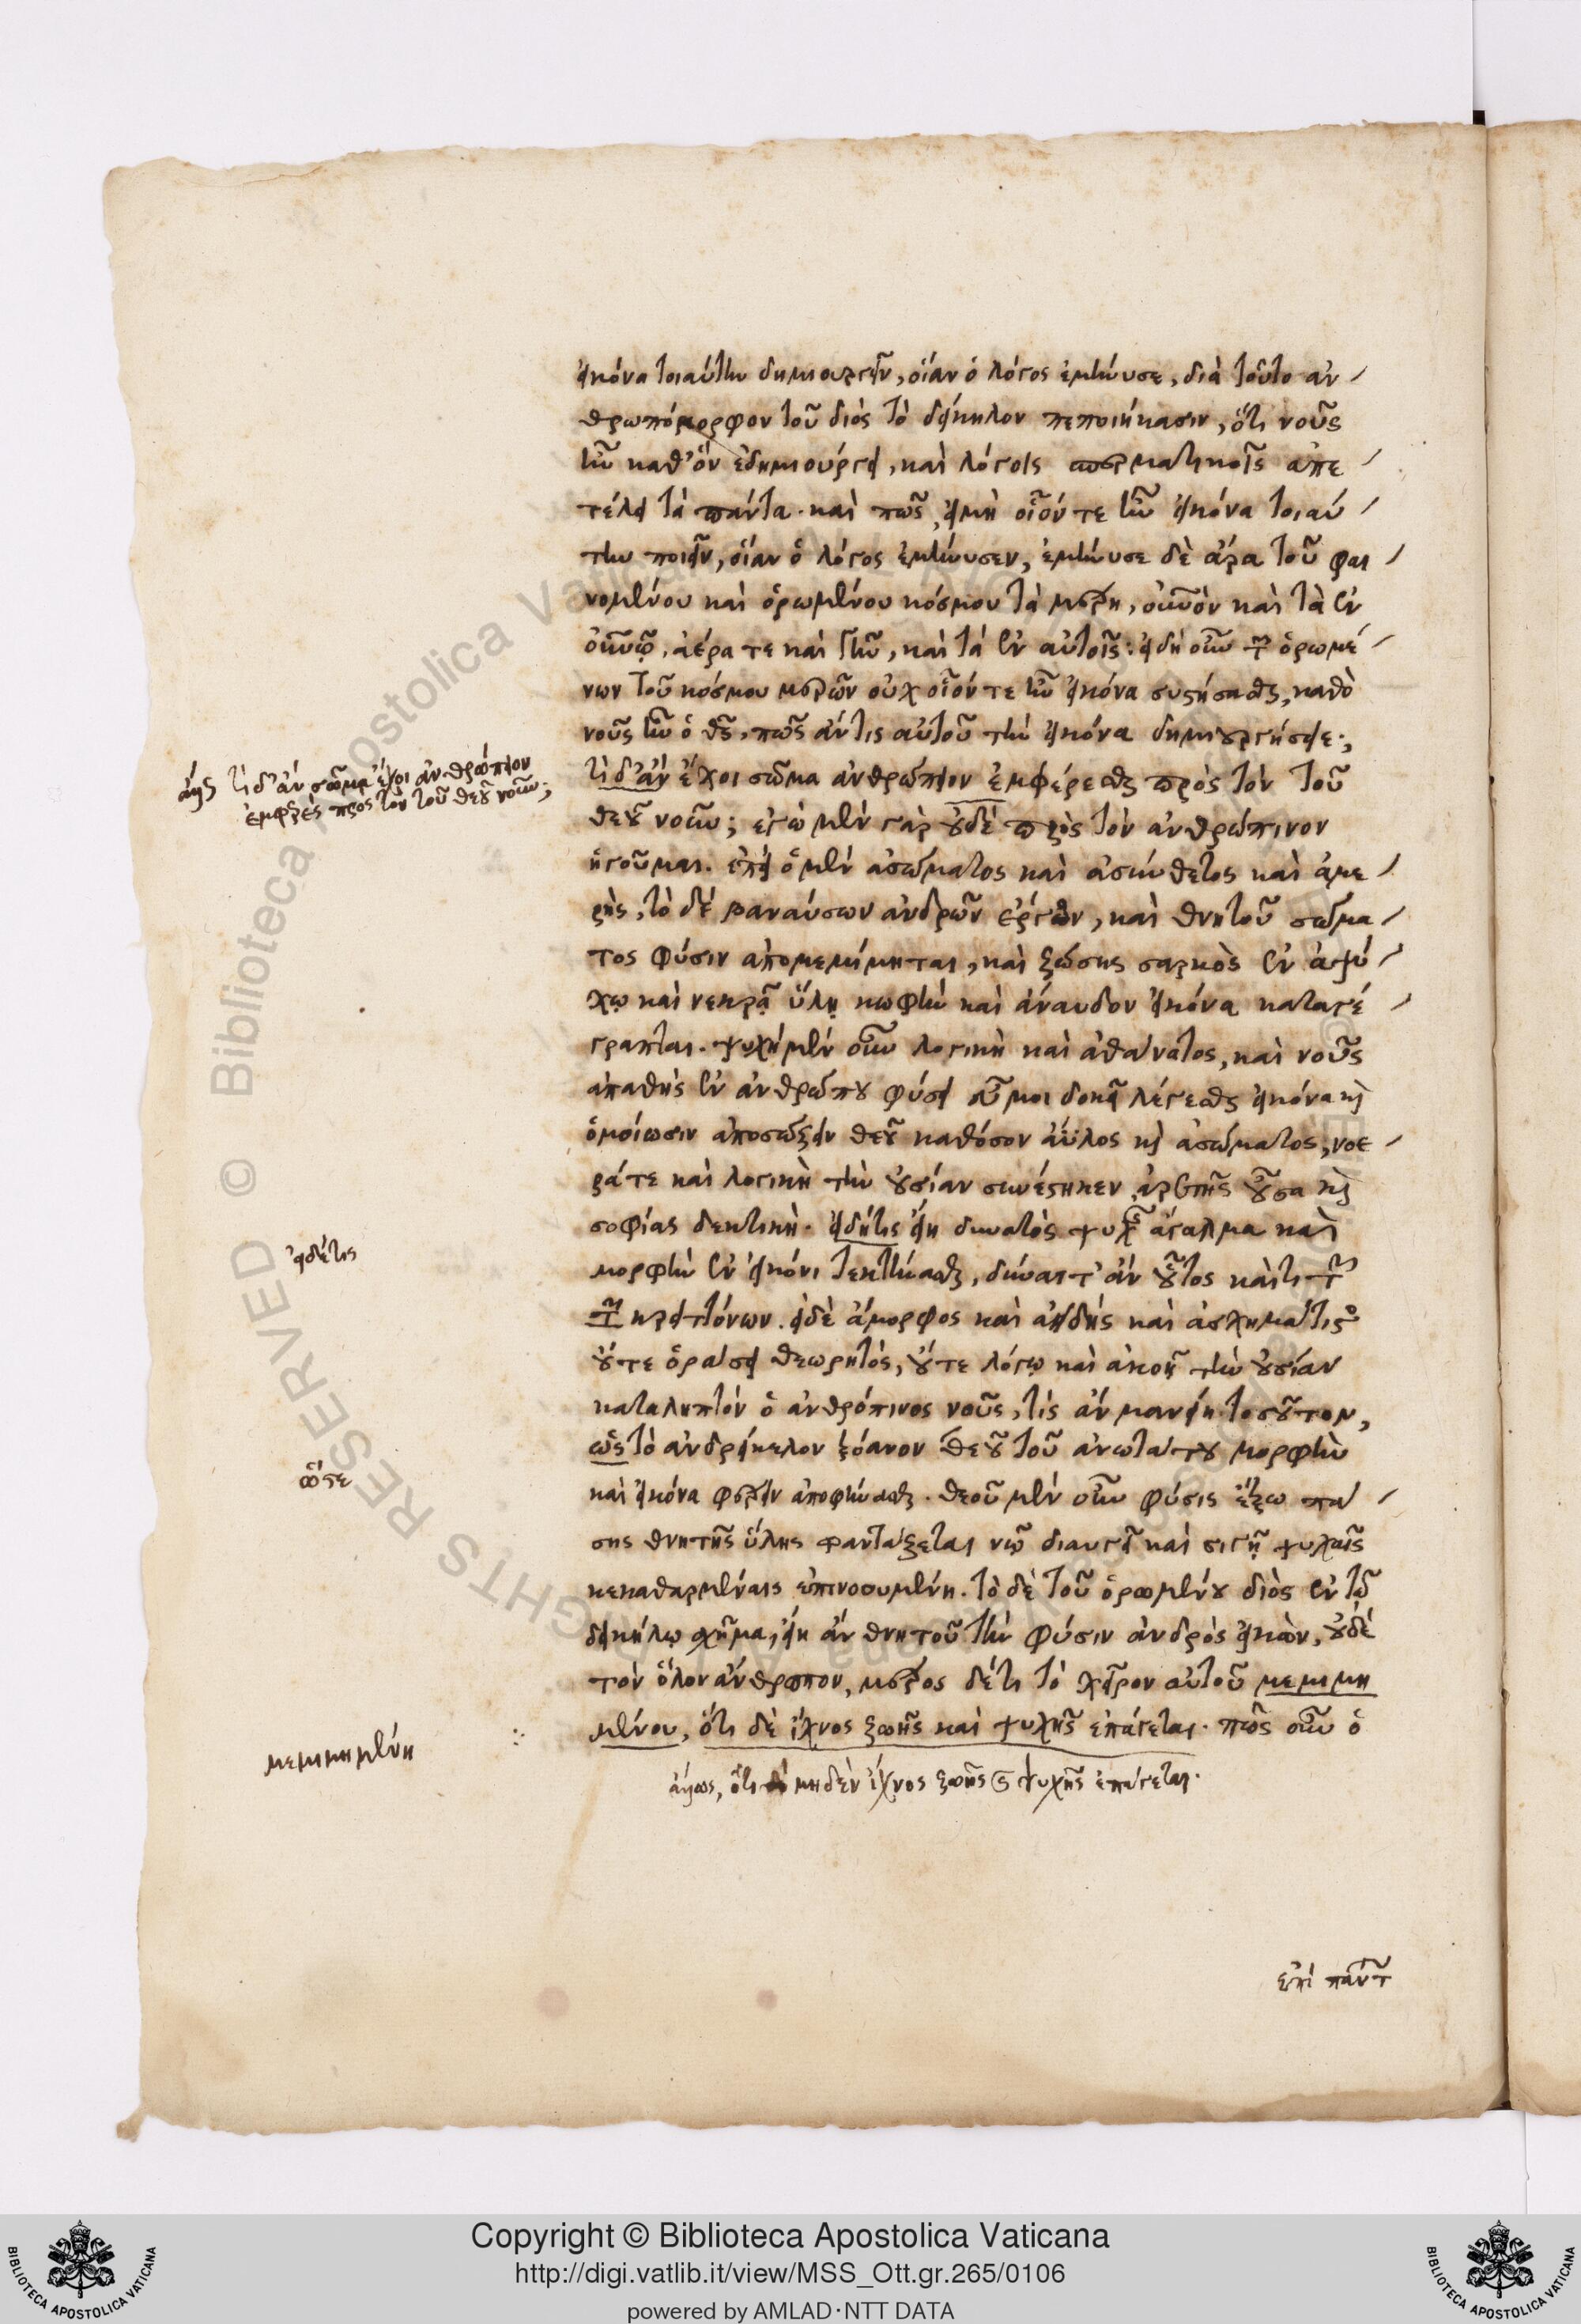 εἰκόνα τοιαύτην δημιουργεῖν, οἵαν ὁ λόγος ἐμήνυσε, διὰ τοῦτο ἀν
θρωπόμορφον τοῦ διὸς τὸ δείκηλον πεποιήκασιν, ὅτι νοῦς
ἦν καθ' ὃν ἐδημιούργει, καὶ λόγοις σπερματικοῖς ἀπε
τέλει τὰ πάντα. καὶ πῶς, εἰ μὴ οἷόν τε ἦν εἰκόνα τοιαύ
την ποιεῖν, οἵαν ὁ λόγος ἐμήνυσεν, ἐμήνυσε δὲ ἄρα τοῦ φαι
νομένου καὶ ὁρωμένου κόσμου τὰ μέρη, οὐνὸν καὶ τὰ ἐν
οὐνῷ, ἀέρα τε καὶ γῆν, καὶ τὰ ἐν αὐτοῖς: εἰ δὴ οὖν τῶν ὁρωμέ
νων τοῦ κόσμου μερῶν οὐχ οἷόν τε ἦν εἰκόνα συστήσασθαι, καθὸ
νοῦς ἦν ὁ θς, πῶς ἄν τις αὐτοῦ τὴν εἰκόνα δημιουργήσειε;
τί δ' ἂν ἔχοι σῶμα ἀνθρώπειον ἐμφέρεσθαι πρὸς τὸν τοῦ
θεοῦ νοῦν; ἐγὼ μὲν γὰρ οὐδὲ πρὸς τὸν ἀνθρώπινον
ἡγοῦμαι. ἐπεὶ ὁ μὲν ἀσώματος καὶ ἀσύνθετος καὶ ἀμε
ρὴς, τὸ δὲ βαναύσων ἀνδρῶν ἔργον, καὶ θνητοῦ σώμα
τος φύσιν ἀπομεμίμηται, καὶ ζώσης σαρκὸς ἐν ἀψύ
χῳ καὶ νεκρᾷ ὕλῃ κωφὴν καὶ ἄναυδον εἰκόνα καταγέ
γραπται. ψυχὴ μὲν οὖν λογικὴ καὶ ἀθάνατος, καὶ νοῦς
ἀπαθὴς ἐν ἀνθρώπου φύσει εὖ μοι δοκεῖ λέγεσθαι εἰκόνα κỳ
ὁμοίωσιν ἀποσώζειν θεοῦ καθόσον ἄϋλος κỳ ἀσώματος, νοε
ρά τε καὶ λογικὴ τὴν οὐσίαν συνέστηκεν, ἀρετῆς οὖσα κỳ
σοφίας δεκτικὴ. εἰ δή τις εἴη δυνατὸς ψυχῆς ἄγαλμα καὶ
μορφὴν ἐν εἰκόνι τεκτήνασθαι, δύναιτ' ἂν οὗτος καί τι τῶν
τῶν κρειττόνων. εἰ δὲ ἄμορφος καὶ ἀειδὴς καὶ ἀσχημάτιστος
οὔτε ὁράσει θεωρητὸς, οὔτε λόγῳ καὶ ἀκοῇ τὴν οὐσίαν
καταληπτὸν ὁ ἀνθρόπινος νοῦς, τίς ἂν μανείη τοσοῦτον,
ὡς τὸ ἀνδρείκελον ξόανον θεοῦ τοῦ ἀνωτάτου μορφὴν
καὶ εἰκόνα φέρειν ἀποφήνασθαι. θεοῦ μὲν οὖν φύσις ἔξω πά
σης θνητῆς ὕλης φαντάζεται νῷ διαυγεῖ καὶ σιγῇ ψυχαῖς
κεκαθαρμέναις ἐπινοουμένη. τὸ δὲ τοῦ ὁρωμένου διὸς ἐν τῷ
δεικήλῳ σχῆμα, εἴη ἂν θνητοῦ τὴν φύσιν ἀνδρὸς εἰκὼν, οὐδὲ
τὸν ὅλον ἄνθρωπον, μέρος δέ τι τὸ χεῖρον αὐτοῦ μεμιμη
μένου, ὅτι δὲ ἴχνος ζωῆς καὶ ψυχῆς ἐπάγεται. πῶς οὖν ὁ
ἄλλως, ὅτι μηδὲν ἴχνος ζωῆς καὶ ψυχῆς ἐπάγεται.
ἐπὶ πάντων
τί δ' ἂν σῶμα ἔχοι ἀνθρώπειον
ἐμφερὲς πρὸς τὸν τοῦ θεοῦ νοῦν;
εἰ δέ τις
ὥστε
μεμιμημένη
Copyright © Biblioteca Apostolica Vaticana
http://digi.vatlib.it/view/MSS_Ott.gr.265/0106
powered by AMLAD·NTT DATA
BIBLIOTECA APOSTOLICA VATICANA
BIBLIOTECA APOSTOLICA VATICANA